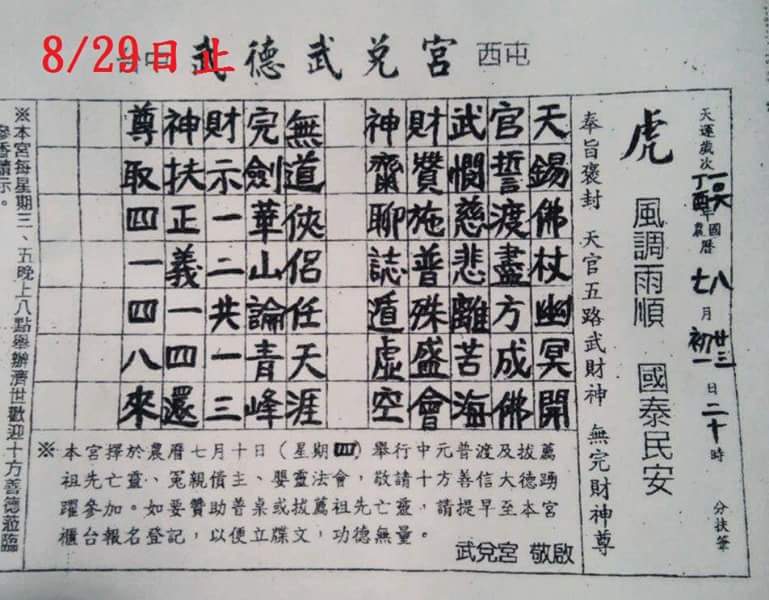 8/29日止
台中 武德武兌宮 西屯
天運歲次丁酉年 國曆八月廿三日 農曆七月初一 二十時 分扶筆
虎 風調雨順 國泰民安
奉旨褒封 天官五路武財神 無完財神尊
天錫佛杖幽冥開
官誓渡盡方成佛
武憫慈悲離苦海
財贊施普殊盛會
神齋聊誌遁虛空
無道俠侶任天涯
完劍華山論青峰
財示一二共一三
神扶正義一四還
尊取四一四八來
※本宮擇於農曆七月十日(星期四)舉行中元普渡及拔薦
祖先亡靈、冤親債主、嬰靈法會,敬請十方善信大德踴
躍參加。如要贊助普桌或拔薦祖先亡靈,請提早至本宮
櫃台報名登記,以便立牒文,功德無量。
武兌宮 敬啟
※本宮每星期三、五晚上八點舉辦濟世歡迎十方善德蒞臨
參香請示。